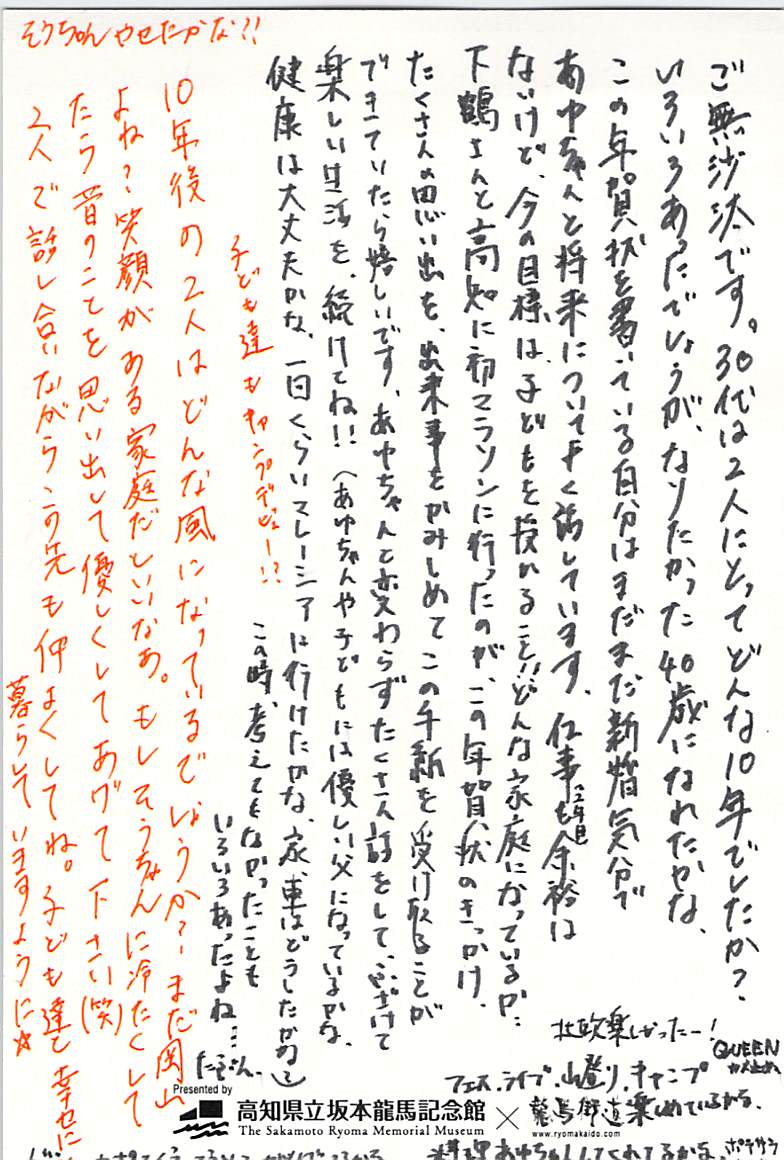 ご無沙汰です。30代は2人にとってどんな10年でしたか?
いろいろあったでしょうが、なりたかった40歳になれたかな、
この年賀状を書いている自分はまだまだ新婚気分で
あゆちゃんと将来についてよく話しています、仕事も余裕は
2年目
ないけど、今の目標は、子どもを授かること!!どんな家庭になっているか…
下鶴さんと高知に初マラソンに行ったのが、この年賀状のきっかけ、
たくさんの思い出を、出来事をかみしめてこの手紙を受け取ることが
できていたら嬉しいです、あゆちゃんと変わらずたくさん話をして、ふざけて
楽しい生活を、続けてね!!(あゆちゃんや子どもには優しい父になっているかな、
健康は大丈夫かな、一回くらいマレーシアは行けたかな、家、車はどうしたかな)
この時、考えてもなかったことも
いろいろあったよね…
たぶん、
北欧楽しかったー!
QUEEN
フェス、ライブ、山登り、キャンプ
楽しめているかな、
そうちゃんやせたかな?!
子ども達もキャンプデビュー!?
10年後の2人はどんな風になっているでしょうか?まだ岡山
よね?笑顔がある家庭だといいなあ。もしそうちゃんに冷たくして
たら昔のことを思い出して優しくしてあげて下さい(笑)
2人で話し合いながらこの先も仲よくしてね。子ども達と幸せに
暮らしていますように☆
Presented by
高知県立坂本龍馬記念館
The Sakamoto Ryoma Memorial Museum
×
龍馬街道
www.ryomakaido.com